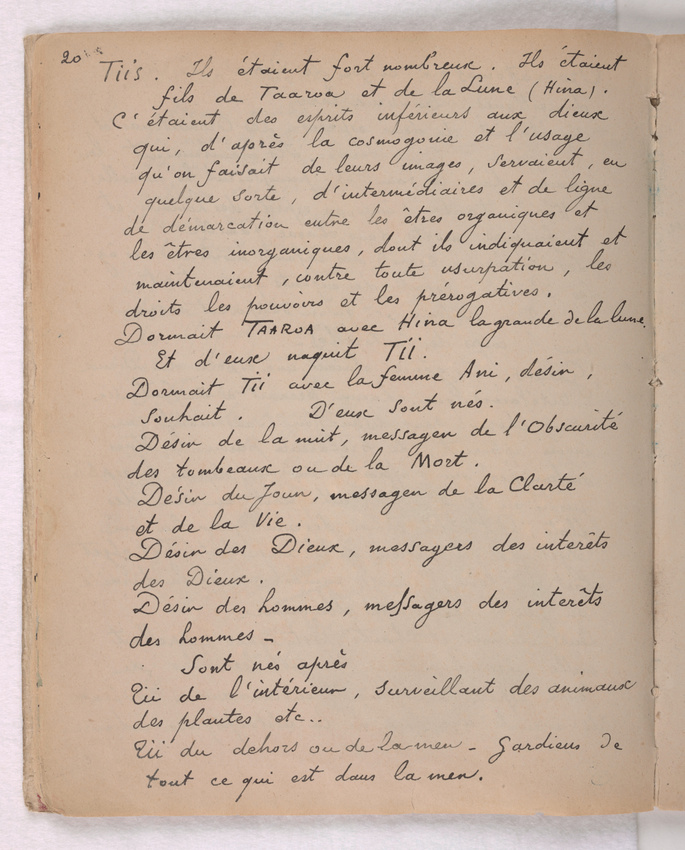 20
Tiis. Ils étaient fort nombreux. Ils étaient
fils de Taaroa et de la Lune (Hina).
C'étaient des esprits inférieurs aux dieux
qui, d'après la cosmogonie et l'usage
qu'on faisait de leurs images, servaient, en
quelque sorte, d'intermédiaires et de ligne
de démarcation entre les êtres organiques et
les êtres inorganiques, dont ils indiquaient et
maintenaient, contre toute usurpation, les
droits les pouvoirs et les prérogatives.
Dormait TAAROA avec Hina la grande de la lune.
Et d'eux naquit Tii.
Dormait Tii avec la femme Ani, désir,
souhait. D'eux sont nés.
Désir de la nuit, messager de l'Obscurité
des tombeaux ou de la Mort.
Désir du Jour, messager de la Clarté
et de la Vie.
Désir des Dieux, messagers des interêts
des Dieux.
Désir des hommes, messagers des interêts
des hommes -
Sont nés après
Tii de l'intérieur, surveillant des animaux
des plantes etc..
Tii du dehors ou de la mer - Gardiens de
tout ce qui est dans la mer.